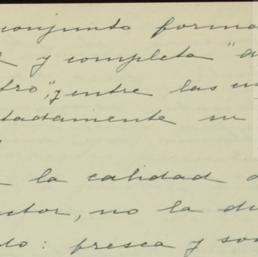 conjunto forma
y completa "a
tro", y entre las
tadamente su
la calidad d
ctor, no la di
do: fresca y son